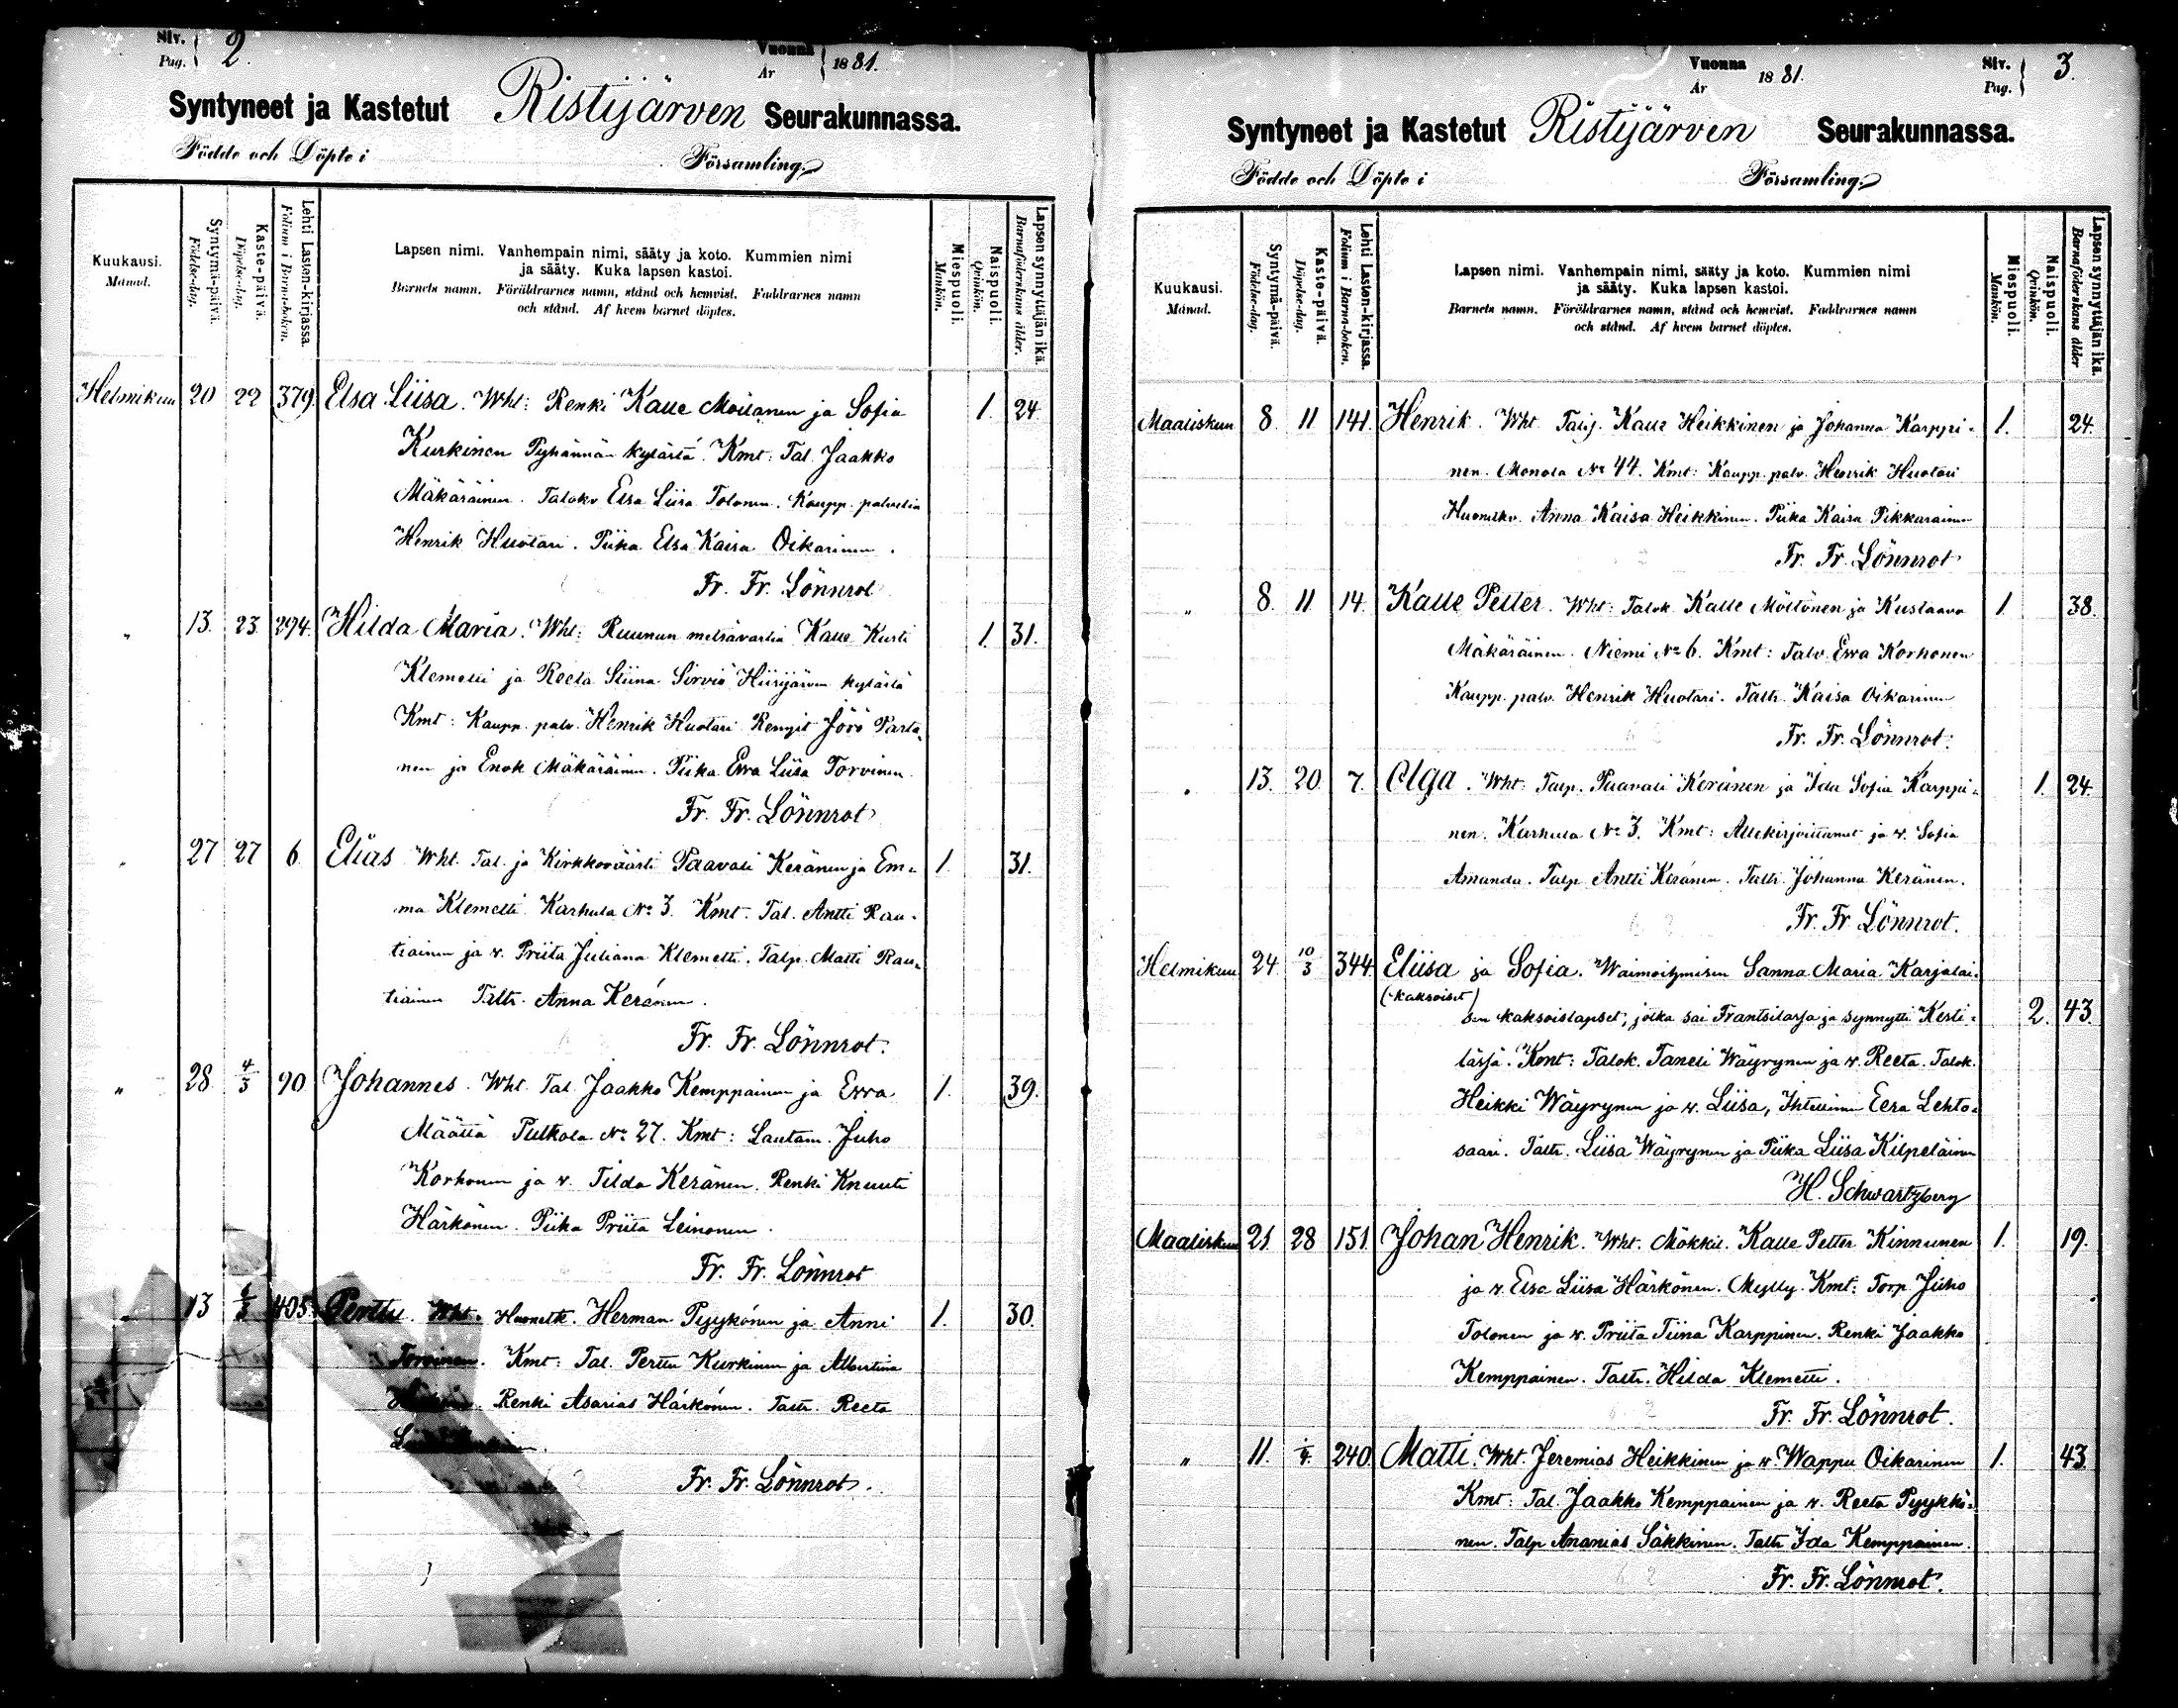 Siv. 2.
Pag.
Vuonna 1881.
År
Syntyneet ja Kastetut Ristijärven Seurakunnassa.
Födde och Döpte i Församling.
Kuukausi.
Månad.
Syntymä-päivä.
Födelse-dag.
Kaste-päivä.
Döpelse-dag.
Lehti Lasten-kirjassa.
Folium i Barna-boken.
Lapsen nimi. Vanhempain nimi, sääty ja koto. Kummien nimi
ja sääty. Kuka lapsen kastoi.
Barnets namn. Föräldrarnes namn, stånd och hemvist. Faddrarnes namn
och stånd. Af hvem barnet döptes.
Miespuoli.
Mankön.
Naispuoli.
Qvinkön.
Lapsen synnyttäjän ikä.
Barnaföderskans ålder.
Helmikuu 20 22 379. Elsa Liisa. Wht: Renki Kalle Moilanen ja Sofia 1. 24.
Kurkinen Pyhännän kylästä. Kmt: Tal. Jaakko
Mäkäräinen. Talokv Elsa Liisa Tolonen. Kaupp. palvelia
Henrik Huotari. Piika Elsa Kaisa Oikarinen.
Fr. Fr. Lönnrot
" 13. 23. 294. Hilda Maria. Wht: Ruunun metsävartia Kalle Kusti 1. 31.
Klemetti ja Reeta Stiina Sirviö Hiisijärven kylästä
Kmt: Kaupp. palv. Henrik Huotari Rengit Jörö Parta-
nen ja Enok Mäkäräinen. Piika Ewa Liisa Torvinen.
Fr. Fr. Lönnrot
" 27 27 6. Elias Wht. Tal. ja Kirkkoväärti Paavali Keränen ja Em- 1. 31.
ma Klemetti Karhula No 3. Kmt. Tal. Antti Rau-
tiainen ja v. Priita Juliana Klemetti. Talp. Matti Rau-
tiainen Taltr. Anna Keränen.
Fr. Fr. Lönnrot.
" 28. 4/3 90 Johannes. Wht. Tal. Jaakko Kemppainen ja Ewa 1. 39.
Määttä Pulkola No 27. Kmt: Lautam. Juho
Korhonen ja v. Tilda Keränen. Renki Knuuti
Härkönen. Piika Priita Leinonen.
Fr. Fr. Lönnrot
" 13 6/3 405. Perttu. Wht. Huonelk. Herman Pyykönen ja Anni 1. 30.
Torvinen. Kmt: Tal. Perttu Kurkinen ja Albertina
Renki Asarias Härkönen. Taltr. Reeta
Fr. Fr. Lönnrot.
Vuonna 1881.
År
Siv. 3.
Pag.
Syntyneet ja Kastetut Ristijärven Seurakunnassa.
Födde och Döpte i Församling.
Kuukausi.
Månad.
Syntymä-päivä.
Födelse-dag.
Kaste-päivä.
Döpelse-dag.
Lehti Lasten-kirjassa.
Folium i Barna-boken.
Lapsen nimi. Vanhempain nimi, sääty ja koto. Kummien nimi
ja sääty. Kuka lapsen kastoi.
Barnets namn. Föräldrarnes namn, stånd och hemvist. Faddrarnes namn
och stånd. Af hvem barnet döptes.
Miespuoli.
Mankön.
Naispuoli.
Qvinkön.
Lapsen synnyttäjän ikä.
Barnaföderskans ålder
Maaliskuu 8. 11 141. Henrik. Wht. Kalle Heikkinen ja Johanna Karppi- 1. 24.
nen. Monola No 44. Kmt: Kaupp. palv. Henrik Huotari
Anna Kaisa Heikkinen. Piika Kaisa Pikkarainen
Fr. Fr. Lönnrot
" 8. 11 14. Kalle Petter. Wht: Talok. Kalle Möttönen ja Kustaava 1. 38.
Mäkäräinen. Niemi No 6. Kmt: Talv. Ewa Korhonen
Kaupp. palv. Henrik Huotari. Taltr. Kaisa Oikarinen
Fr. Fr. Lönnrot.
" 13. 20. 7. Olga. Wht: Talp. Paavali Keränen ja Ida Sofia Karppi- 1. 24.
nen. Karhula No 3. Kmt: Allekirjoittanut ja v. Sofia
Amanda. Talp. Antti Keränen. Taltr. Johanna Keränen.
Fr. Fr Lönnrot.
Helmikuu 24. 10/3 344. Eliisa ja Sofia. Waimoihmisen Sanna Maria Karjalai-
(kaksoiset)
sen kaksoislapset, jotka sai Frantsilassa ja synnytti Kesti- 2. 43.
lässä. Kmt: Talok. Taneli Wäyrynen ja v. Reeta. Talok.
Heikki Wäyrynen ja v. Liisa, Ihtellinen Eera Lehto-
saari. Taltr. Liisa Wäyrynen ja Piika Liisa Kilpeläinen
H. Schwartzberg
Maaliskuu 21. 28 151. Johan Henrik. Wht. Mökkil. Kalle Petter Kinnunen 1. 19.
ja v. Elsa Liisa Härkönen. Mylly. Kmt: Torp. Juho
Tolonen ja v. Priita Tiina Karppinen. Renki Jaakko
Kemppainen. Taltr. Hilda Klemetti.
Fr. Fr. Lönnrot.
" 11. 1/4. 240. Matti. Wht. Jeremias Heikkinen ja v. Wappu Oikarinen 1. 43.
Kmt: Tal. Jaakko Kemppainen ja v. Reeta Pyykkö-
nen. Talp Ananias Säkkinen. Taltr Ida Kemppainen.
Fr. Fr. Lönnrot.